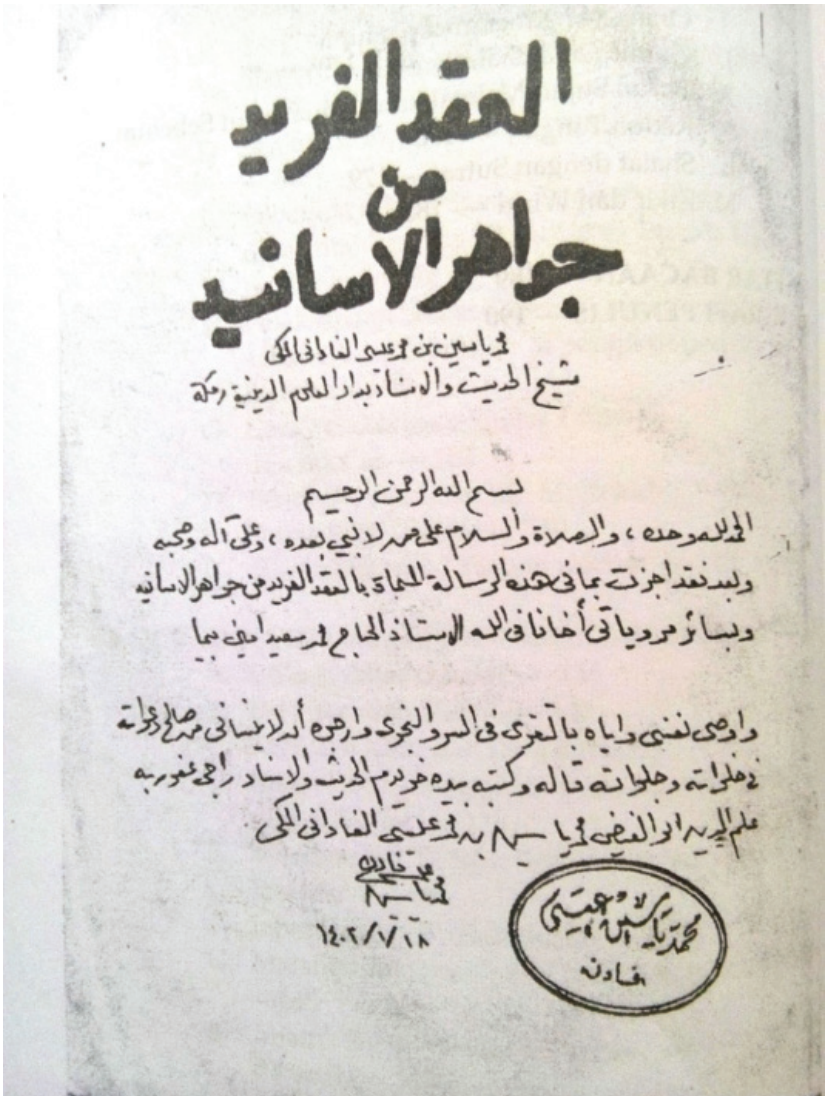 العقد الفريد
من
جواهر الاسانيد
محمد ياسين بن محمد عيسى الفاداني المكي
شيخ الحديث والاسناد بدار العلوم الدينية بمكة
بسم الله الرحمن الرحيم
الحمد لله وحده ، والصلاة والسلام على من لا نبي بعده ، وعلى آله وصحبه
وبعد فقد اجزت بما في هذه الرسالة المسماة بالعقد الفريد من جواهر الاسانيد
وبسائر مروياتي أخانا في الله الاستاذ الحاج محمد سعيد امين بيما
واوصي نفسي واياه بالتقوى في السر والنجوى وارجوه أن لا ينساني من صالح دعواته
في خلواته وجلواته قاله وكتبه بيده خويدم الحديث والاسناد راجي عفو ربه
علم الدين ابو الفيض محمد ياسين بن محمد عيسى الفاداني المكي
محمد ياسين
١٤٠٢/١/١٨
محمد ياسين عيسى
فادن